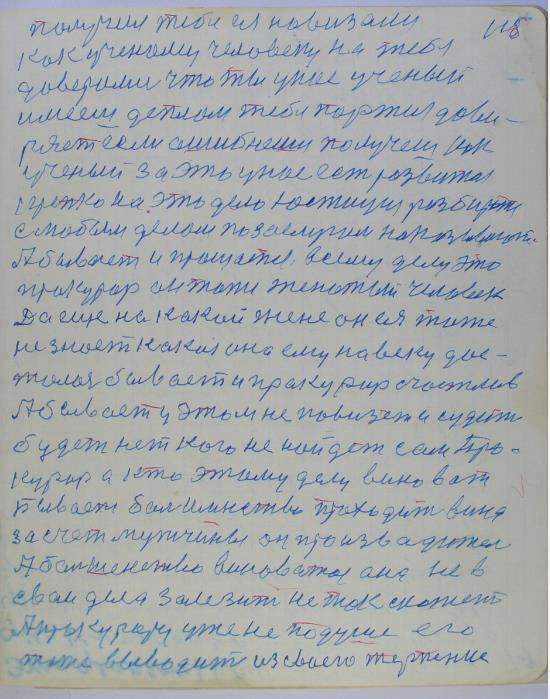 118
получил тебя ея навизали
как ученому человеку на тебя
доверили что ты уное ученый
имееш деплом тебя партия дове-
ряет если ошибнеш получеш как
ученый за это уное ест развитая
на это дело юстиция разбират
с любым делом по заслугам наказывают.
А бывает и прощается, всему делу это
прокурор он тоже женатый человек
Да еще на какой жене он ея тоже
не знает какая она ему навеку дос-
талоя бывает и пракурар счастлив
А бывает у этом не повизет и судит
будет нет кого не найдет сам Про-
курор а кто этому делу виноват
Бывает балшинство праходит вина
за счет мужчины он произвадител
А балшенство виноватая ана не в
сваи дела залезит не так скажет
А пракурару уже не подуше его
тоже выводит из своего терпение